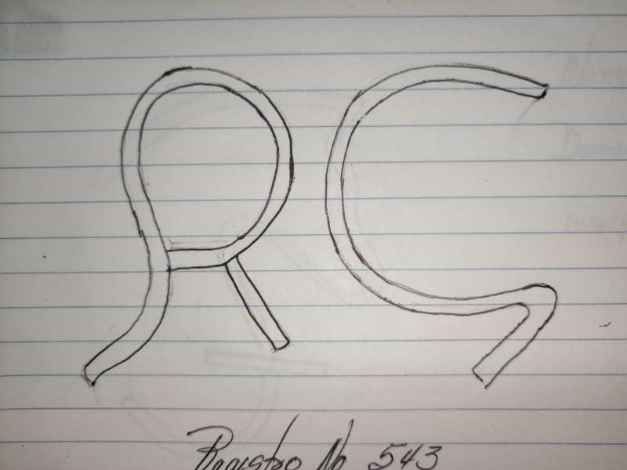 RG
Registro No 543